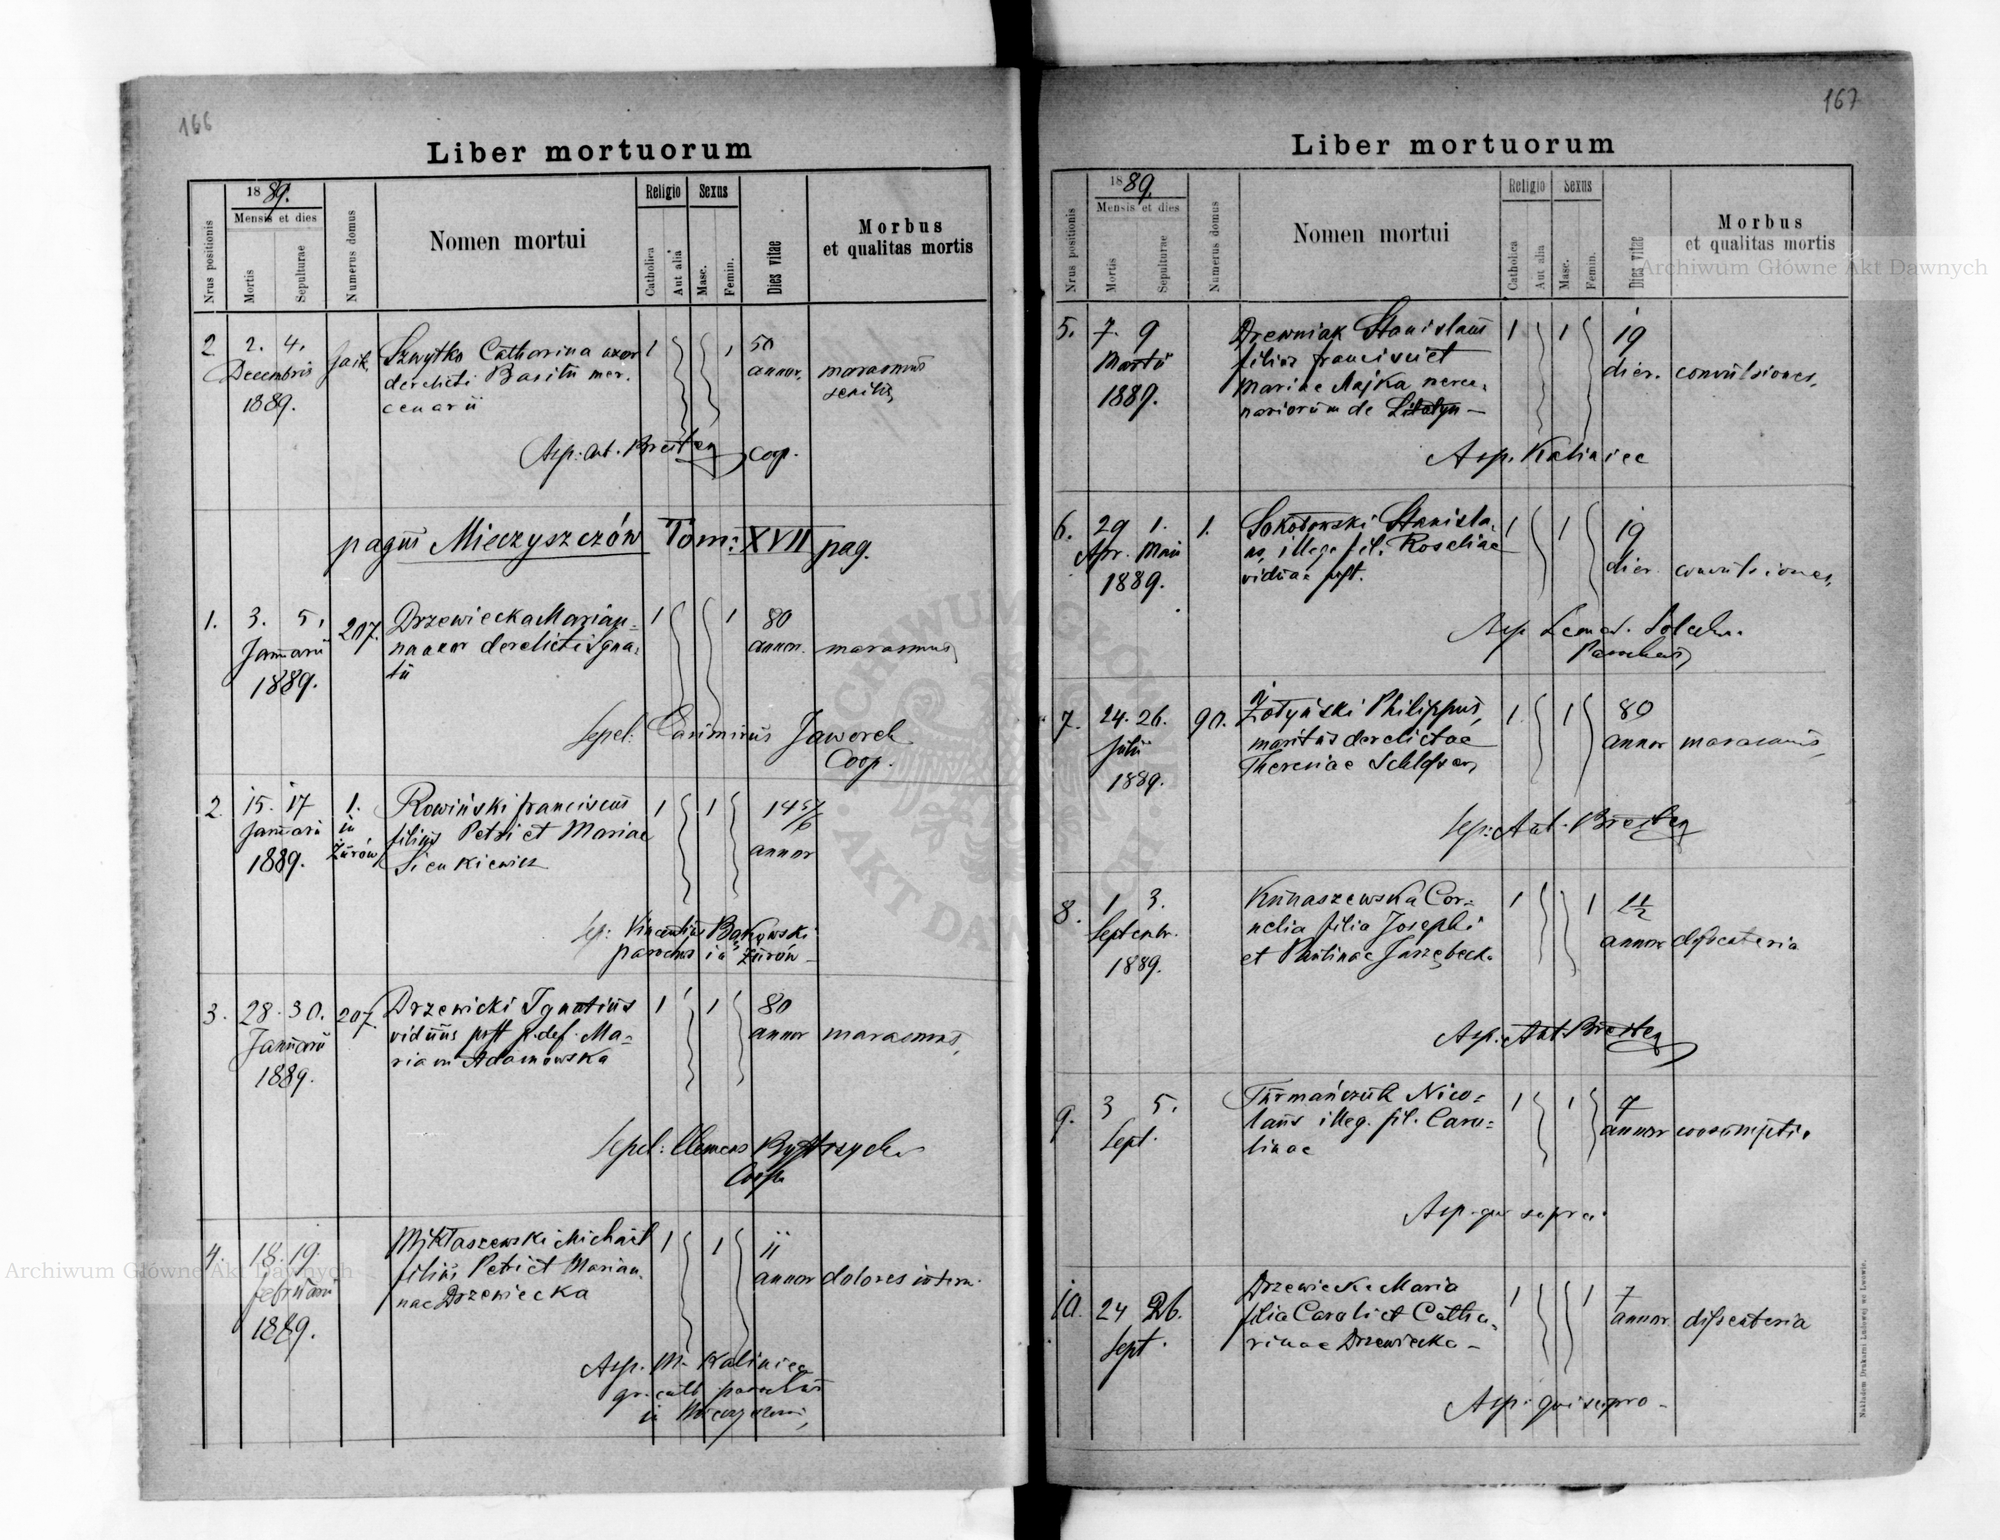 166
Liber mortuorum
1889.
Mensis et dies
Nrus positionis
Mortis
Sepulturae
Numerus domus
Nomen mortui
Religio
Sexus
Catholica
Aut alia
Masc.
Femin.
Dies vitae
Morbus
et qualitas mortis
2. 2. 4. Szwytko Catharina uxor 1 1 50
Decembris derelicti Basilii mer. annor. marasmus
1889. cenarii senilis
Asp: Ant. Coop.
pagus Mieczyszczów Tom: XVII pag.
1. 3. 5. 207. Drzewiecka Marian= 1 1 80
Januarii na uxor derelicti Igna= annor. marasmus
1889. tii
Sepel: Casimirus Jaworek
Coop.
2. 15. 17 1. Rowiński Franciscus 1 1 14
Januarii in filius Petri et Mariae annor
1889. Żurów Sienkiewicz
Sep: Vincentius Bąkowski
parochus in Żurów
3. 28. 30. 207. Drzewicki Ignatius 1 1 80
Januarii viduus post p. def. Ma= annor marasmus
1889. riam Adamowska
Sepel: Clemens
Coop.
4. 18. 19. Mykłaszewski Michael 1 1 11
Februarii filius Petri et Marian= annor dolores intern.
1889. nae Drzewiecka
Asp. M. Kaliniec
gr. cath parochus
in
167
Liber mortuorum
1889.
Mensis et dies
Nrus positionis
Mortis
Sepulturae
Numerus domus
Nomen mortui
Religio
Sexus
Catholica
Aut alia
Masc.
Femin.
Dies vitae
Morbus
et qualitas mortis
5. 7. 9 Drewniak Stanislaus 1 1 19
Martii filius Francisci et dier. convulsiones,
1889. Mariae Majka merce=
nariorum de
Asp. Kaliniec
6. 29 1. 1. Sokołowski Stanisla= 1 1 19
Apr. Maii us, illeg. fil. Rosaliae dier. convulsiones,
1889. viduae post.
Asp
Parochus
7. 24. 26. 90. Żołyński Philippus, 1 1 80
Julii maritus derelictae annor marasmus,
1889. Theresiae
Sep: Ant.
8. 1 3. Kunaszewska Cor= 1 1 1½
Septembr. nelia filia Josephi annor dyssenteria
1889. et Paulinae
Asp: Ant
9. 3 5. Furmańczuk Nico= 1 1 7
Sept. laus illeg. fil. Caro= annor consumptio
linae
Asp. qui supra.
10. 24 26. Drzewiecka Maria 1 1 7
Sept. filia Caroli et Catha= annor. dyssenteria
rinae Drzewiecka
Asp. qui supra
Nakładem Drukarni Ludowej we Lwowie.
Archiwum Główne Akt Dawnych
Archiwum Główne Akt Dawnych
ARCHIWUM GŁÓWNE AKT DAWNYCH